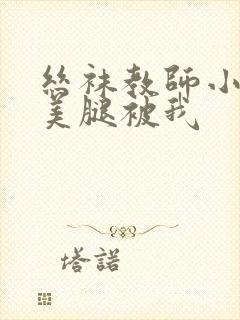 絲袜教師小
美腿被我
塔諾